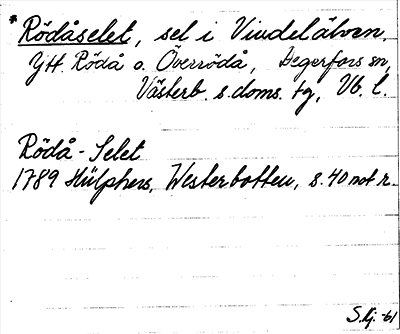 *Rödåselet, sel i Vindelälven.
Ytt. Rödå o. Överrödå, Degerfors sn,
Västerb. s. doms. tg, Vb. l.
Rödå-Selet
1789 Hülphers, Westerbotten, s. 40 not r.
S.Kj.-61